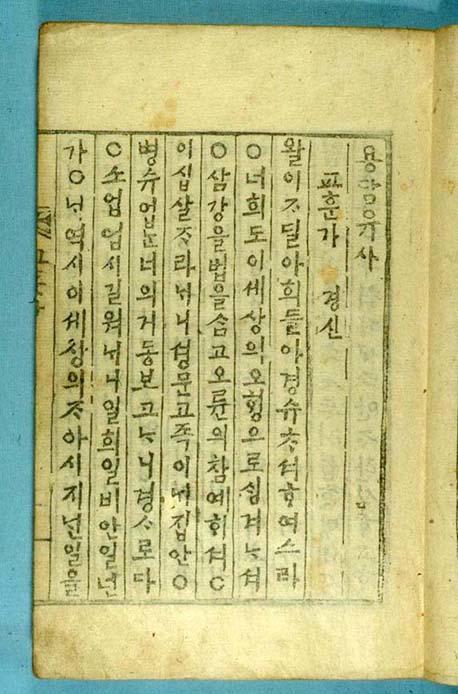 용담유사
교훈가 경신
왈이ᄌᆞ딜아희들아경슈ᄎᆞ셔ᄒᆞ여스라
○너희도이세상의오ᄒᆡᆼ으로ᄉᆡᆼ겨ᄂᆞ셔
○삼강을법을ᄉᆞᆷ고오륜의참예ᄒᆡ셔○
이십살ᄌᆞ라ᄂᆡ니셩문고족이ᄂᆡ집안○
병슈업ᄂᆞᆫ너의거동보고ᄂᆞ니경ᄉᆞ로다
○소업업시길워ᄂᆡ니일희일비안일넌
가○ᄂᆡ역시이세상의ᄌᆞ아시지ᄂᆡᆫ일을